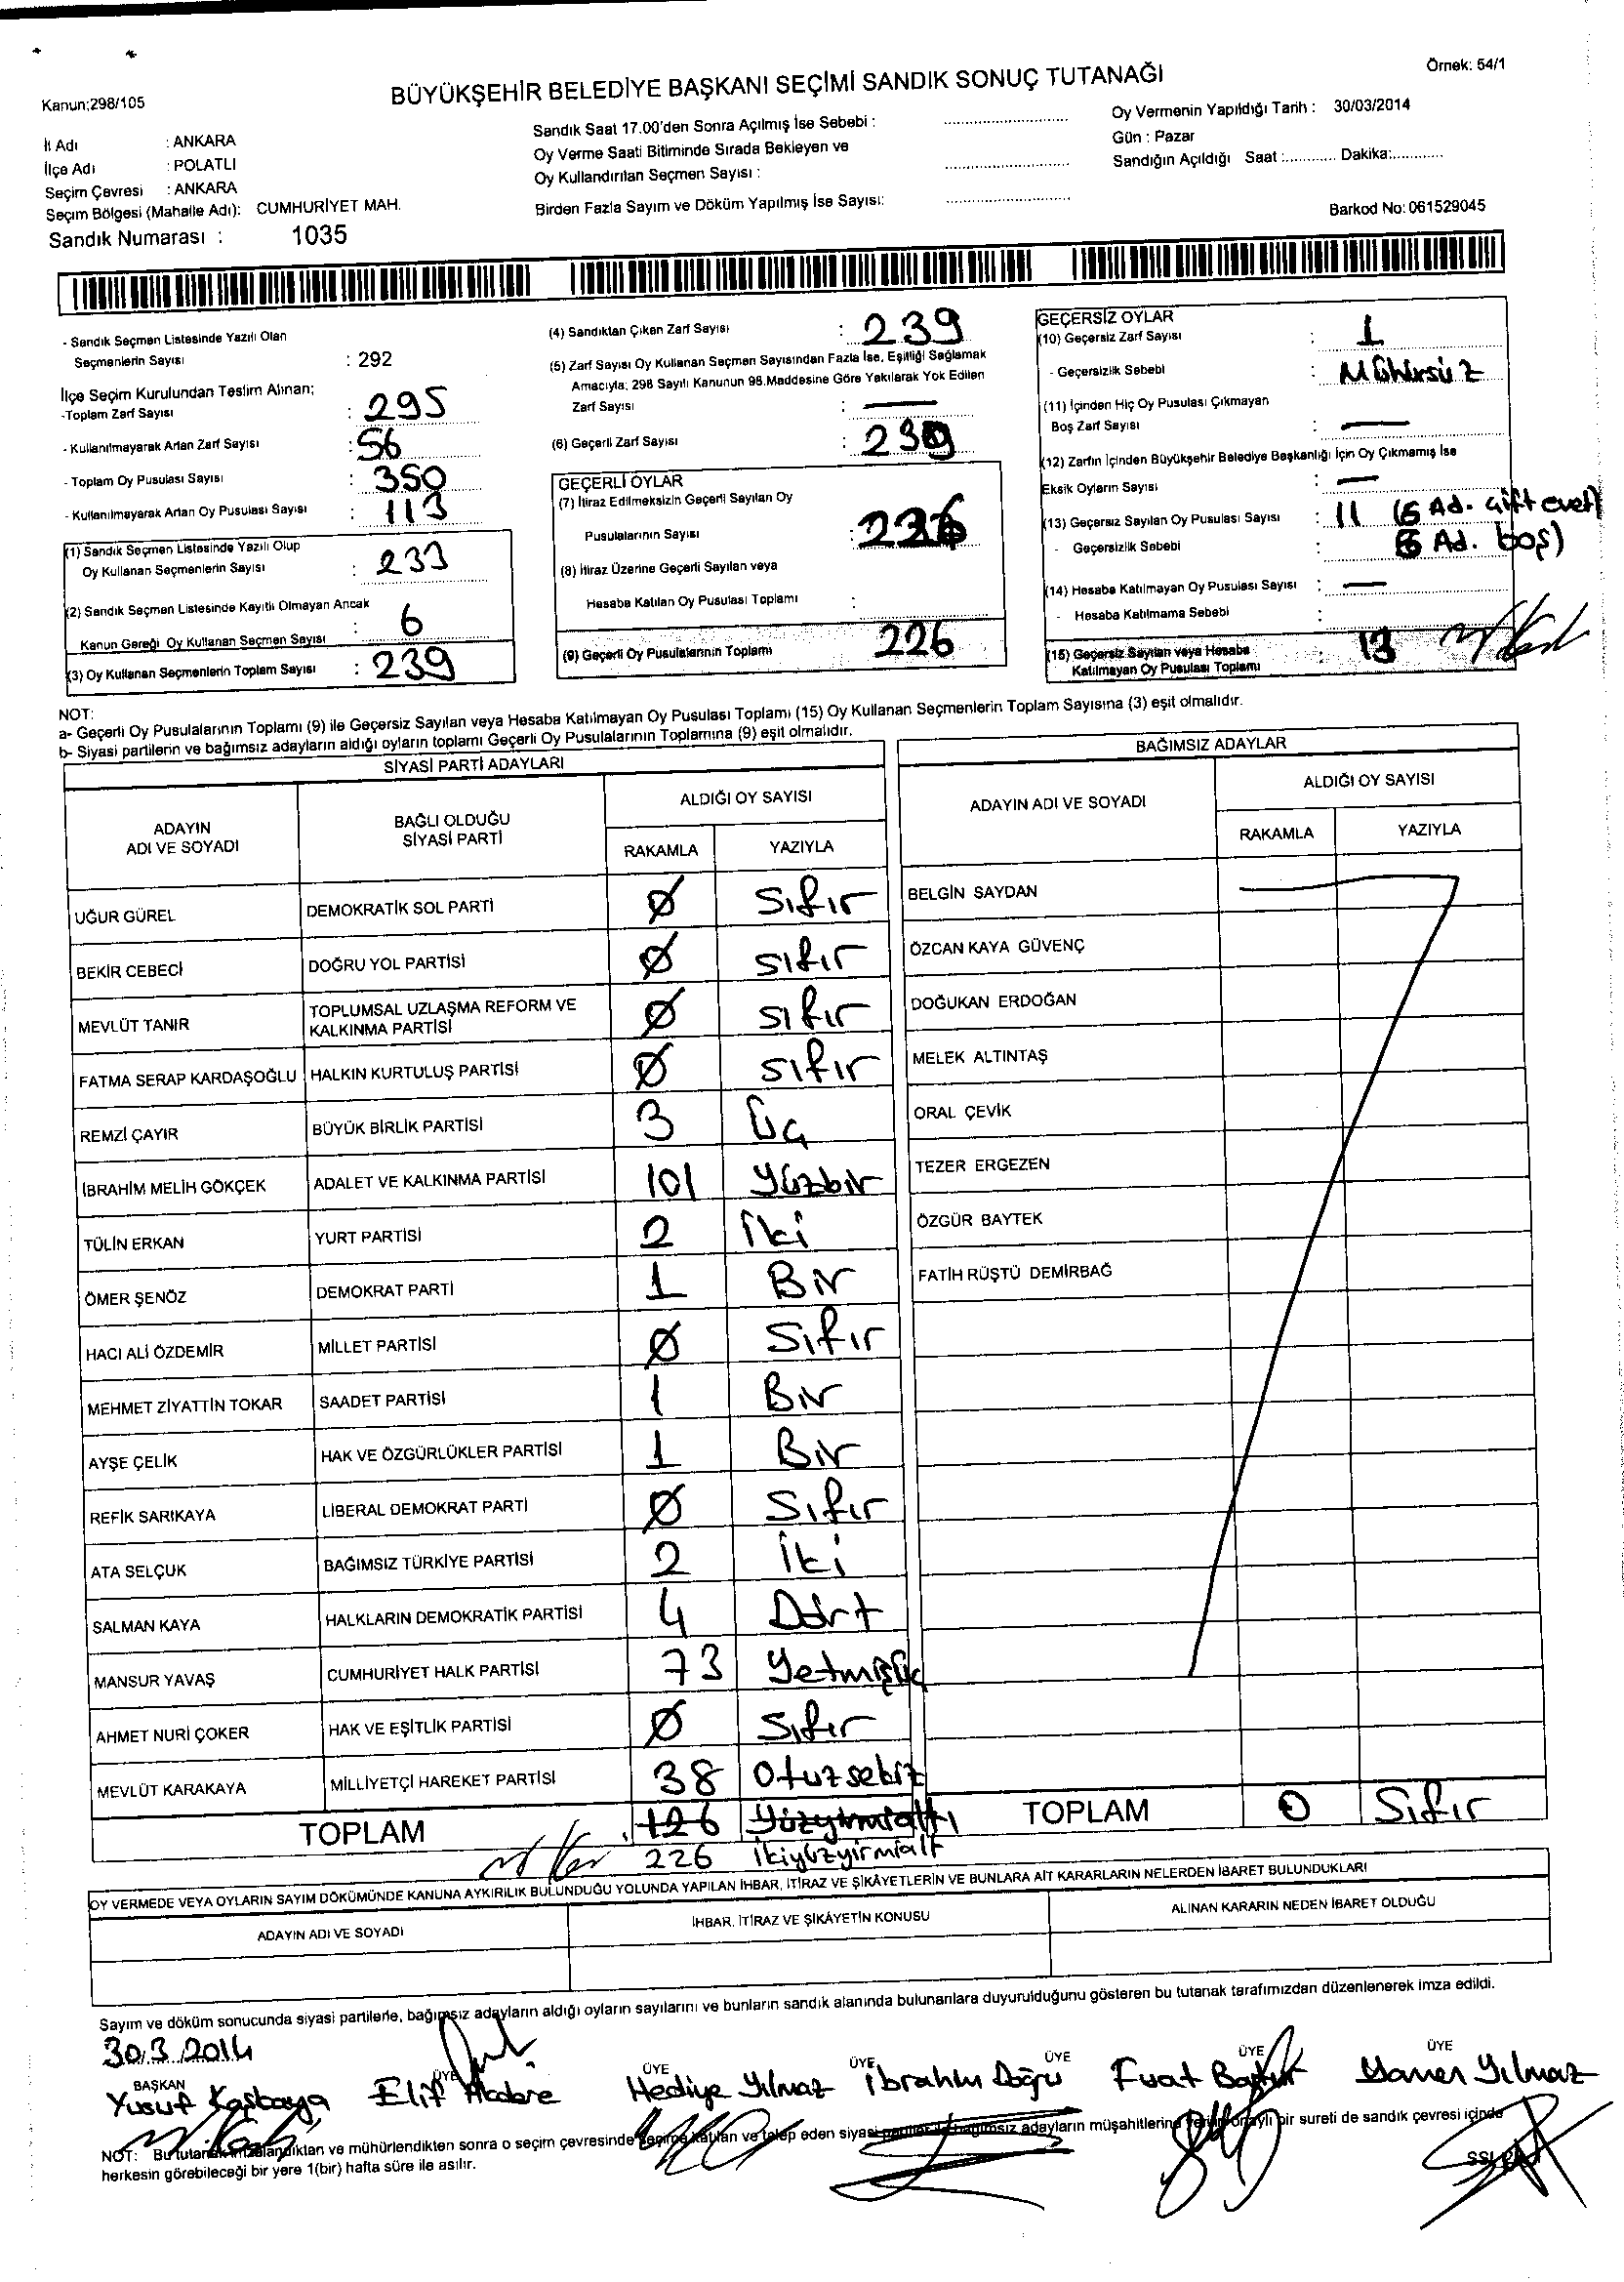 Örnek: 54/1
BÜYÜKŞEHİR BELEDİYE BAŞKANI SEÇİMİ SANDIK SONUÇ TUTANAĞI
Kanun:298/105
İl Adı : ANKARA
İlçe Adı : POLATLI
Seçim Çevresi : ANKARA
Seçim Bölgesi (Mahalle Adı): CUMHURİYET MAH.
Sandık Numarası : 1035
Sandık Saat 17.00'den Sonra Açılmış İse Sebebi :
Oy Verme Saati Bitiminde Sırada Bekleyen ve
Oy Kullandırılan Seçmen Sayısı :
Birden Fazla Sayım ve Döküm Yapılmış İse Sayısı:
Oy Vermenin Yapıldığı Tarih : 30/03/2014
Gün : Pazar
Sandığın Açıldığı Saat :............ Dakika:............
Barkod No: 061529045
- Sandık Seçmen Listesinde Yazılı Olan
Seçmenlerin Sayısı : 292
İlçe Seçim Kurulundan Teslim Alınan;
-Toplam Zarf Sayısı : 295
- Kullanılmayarak Artan Zarf Sayısı : 56
- Toplam Oy Pusulası Sayısı : 350
- Kullanılmayarak Artan Oy Pusulası Sayısı : 113
(1) Sandık Seçmen Listesinde Yazılı Olup
Oy Kullanan Seçmenlerin Sayısı : 233
(2) Sandık Seçmen Listesinde Kayıtlı Olmayan Ancak
Kanun Gereği Oy Kullanan Seçmen Sayısı : 6
(3) Oy Kullanan Seçmenlerin Toplam Sayısı : 239
(4) Sandıktan Çıkan Zarf Sayısı : 239
(5) Zarf Sayısı Oy Kullanan Seçmen Sayısından Fazla İse, Eşitliği Sağlamak
Amacıyla; 298 Sayılı Kanunun 98.Maddesine Göre Yakılarak Yok Edilen
Zarf Sayısı : —
(6) Geçerli Zarf Sayısı :
GEÇERLİ OYLAR
(7) İtiraz Edilmeksizin Geçerli Sayılan Oy
Pusulalarının Sayısı : 226
(8) İtiraz Üzerine Geçerli Sayılan veya
Hesaba Katılan Oy Pusulası Toplamı :
(9) Geçerli Oy Pusulalarının Toplamı 226
GEÇERSİZ OYLAR
(10) Geçersiz Zarf Sayısı : 1
- Geçersizlik Sebebi : Mühürsüz
(11) İçinden Hiç Oy Pusulası Çıkmayan
Boş Zarf Sayısı : —
(12) Zarfın İçinden Büyükşehir Belediye Başkanlığı İçin Oy Çıkmamış İse
Eksik Oyların Sayısı : —
(13) Geçersiz Sayılan Oy Pusulası Sayısı : 11 (6 Ad. Çift evet)
- Geçersizlik Sebebi : Ad. boş)
(14) Hesaba Katılmayan Oy Pusulası Sayısı : —
- Hesaba Katılmama Sebebi :
(15) Geçersiz Sayılan veya Hesaba
Katılmayan Oy Pusulası Toplamı : 13
NOT:
a- Geçerli Oy Pusulalarının Toplamı (9) ile Geçersiz Sayılan veya Hesaba Katılmayan Oy Pusulası Toplamı (15) Oy Kullanan Seçmenlerin Toplam Sayısına (3) eşit olmalıdır.
b- Siyasi partilerin ve bağımsız adayların aldığı oyların toplamı Geçerli Oy Pusulalarının Toplamına (9) eşit olmalıdır.
SİYASİ PARTİ ADAYLARI
ADAYIN ADI VE SOYADI BAĞLI OLDUĞU SİYASİ PARTİ ALDIĞI OY SAYISI
RAKAMLA YAZIYLA
UĞUR GÜREL DEMOKRATİK SOL PARTİ Ø Sıfır
BEKİR CEBECİ DOĞRU YOL PARTİSİ Ø sıfır
MEVLÜT TANIR TOPLUMSAL UZLAŞMA REFORM VE KALKINMA PARTİSİ Ø sıfır
FATMA SERAP KARDAŞOĞLU HALKIN KURTULUŞ PARTİSİ Ø sıfır
REMZİ ÇAYIR BÜYÜK BİRLİK PARTİSİ 3 Üç
İBRAHİM MELİH GÖKÇEK ADALET VE KALKINMA PARTİSİ 101 Yüzbir
TÜLİN ERKAN YURT PARTİSİ 2 İki
ÖMER ŞENÖZ DEMOKRAT PARTİ 1 Bir
HACI ALİ ÖZDEMİR MİLLET PARTİSİ Ø Sıfır
MEHMET ZİYATTİN TOKAR SAADET PARTİSİ 1 Bir
AYŞE ÇELİK HAK VE ÖZGÜRLÜKLER PARTİSİ 1 Bir
REFİK SARIKAYA LİBERAL DEMOKRAT PARTİ Ø Sıfır
ATA SELÇUK BAĞIMSIZ TÜRKİYE PARTİSİ 2 İki
SALMAN KAYA HALKLARIN DEMOKRATİK PARTİSİ 4 Dört
MANSUR YAVAŞ CUMHURİYET HALK PARTİSİ 73 Yetmişüç
AHMET NURİ ÇOKER HAK VE EŞİTLİK PARTİSİ Ø Sıfır
MEVLÜT KARAKAYA MİLLİYETÇİ HAREKET PARTİSİ 38 Otuzsekiz
TOPLAM 126 Yüzyirmialtı
226 İkiyüzyirmialt
BAĞIMSIZ ADAYLAR
ADAYIN ADI VE SOYADI ALDIĞI OY SAYISI
RAKAMLA YAZIYLA
BELGİN SAYDAN
ÖZCAN KAYA GÜVENÇ
DOĞUKAN ERDOĞAN
MELEK ALTINTAŞ
ORAL ÇEVİK
TEZER ERGEZEN
ÖZGÜR BAYTEK
FATİH RÜŞTÜ DEMİRBAĞ
TOPLAM 0 Sıfır
OY VERMEDE VEYA OYLARIN SAYIM DÖKÜMÜNDE KANUNA AYKIRILIK BULUNDUĞU YOLUNDA YAPILAN İHBAR, İTİRAZ VE ŞİKÂYETLERİN VE BUNLARA AİT KARARLARIN NELERDEN İBARET BULUNDUKLARI
ADAYIN ADI VE SOYADI İHBAR, İTİRAZ VE ŞİKÂYETİN KONUSU ALINAN KARARIN NEDEN İBARET OLDUĞU
Sayım ve döküm sonucunda siyasi partilerle, bağımsız adayların aldığı oyların sayılarını ve bunların sandık alanında bulunanlara duyurulduğunu gösteren bu tutanak tarafımızdan düzenlenerek imza edildi.
30.3.2014
BAŞKAN ÜYE ÜYE ÜYE ÜYE ÜYE ÜYE
Yusuf Elif Hediye Yılmaz İbrahim Doğru Fuat Yılmaz
NOT: Bu tutanak imzalandıktan ve mühürlendikten sonra o seçim çevresinde seçime katılan ve talep eden siyasi partiler ile bağımsız adayların müşahitlerine verilir. onaylı bir sureti de sandık çevresi içinde
herkesin görebileceği bir yere 1(bir) hafta süre ile asılır.